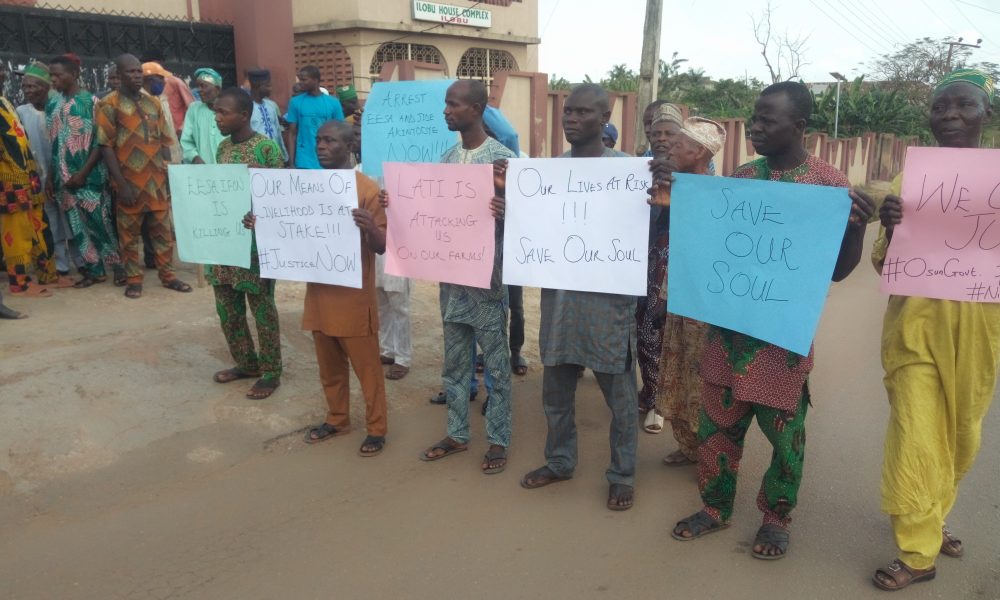 ILOBU HOUSE COMPLEX
ILOBU
ARREST
EESA AND JIDE
AKINTOOYE
NOW!!!
EESA IFON
IS
KILLING US
OUR MEANS OF
LIVELIHOOD IS AT
STAKE!!!
#JUSTICENOW
LATI IS
ATTACKING
US
ON OUR FARMS!
OUR LIVES AT RISK
!!!
SAVE OUR SOUL
SAVE
OUR
SOUL
WE
#OSUNGOVT.